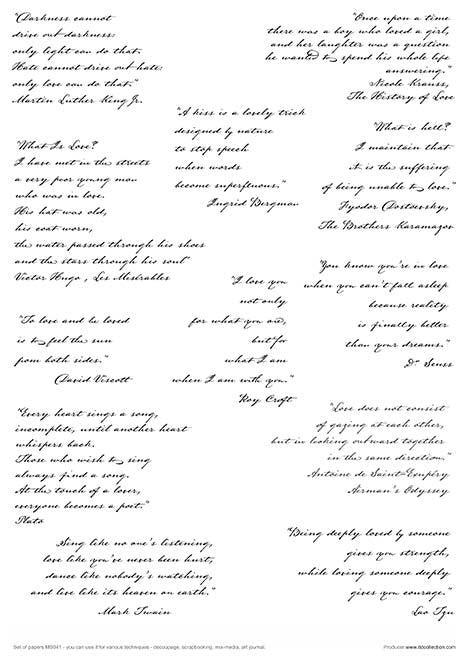 "Darkness cannot
drive out darkness:
only light can do that.
Hate cannot drive out hate:
only love can do that."
Martin Luther King Jr.
"Once upon a time
there was a boy who loved a girl,
and her laughter was a question
he wanted to spend his whole life
answering."
Nicole Krauss,
The History of Love
"A kiss is a lovely trick
designed by nature
to stop speech
when words
become superfluous."
Ingrid Bergman
"What is hell?
I maintain that
it is the suffering
of being unable to love."
Fyodor Dostoevsky,
The Brothers Karamazov
"What Is Love?
I have met in the streets
a very poor young man
who was in love.
His hat was old,
his coat worn,
the water passed through his shoes
and the stars through his soul"
Victor Hugo , Les Misérables
"You know you're in love
when you can't fall asleep
because reality
is finally better
than your dreams."
Dr. Seuss
"I love you
not only
for what you are,
but for
what I am
when I am with you."
Roy Croft
"To love and be loved
is to feel the sun
from both sides."
David Viscott
"Love does not consist
of gazing at each other,
but in looking outward together
in the same direction."
Antoine de Saint-Exupéry
Airman's Odyssey
"Every heart sings a song,
incomplete, until another heart
whispers back.
Those who wish to sing
always find a song.
At the touch of a lover,
everyone becomes a poet."
Plato
Sing like no one's listening,
love like you've never been hurt,
dance like nobody's watching,
and live like its heaven on earth."
Mark Twain
"Being deeply loved by someone
gives you strength,
while loving someone deeply
gives you courage."
Lao Tzu
Set of papers MS041 - you can use it for various techniques - decoupage, scrapbooking, mix-media, art journal.
Producer www.itdcollection.com